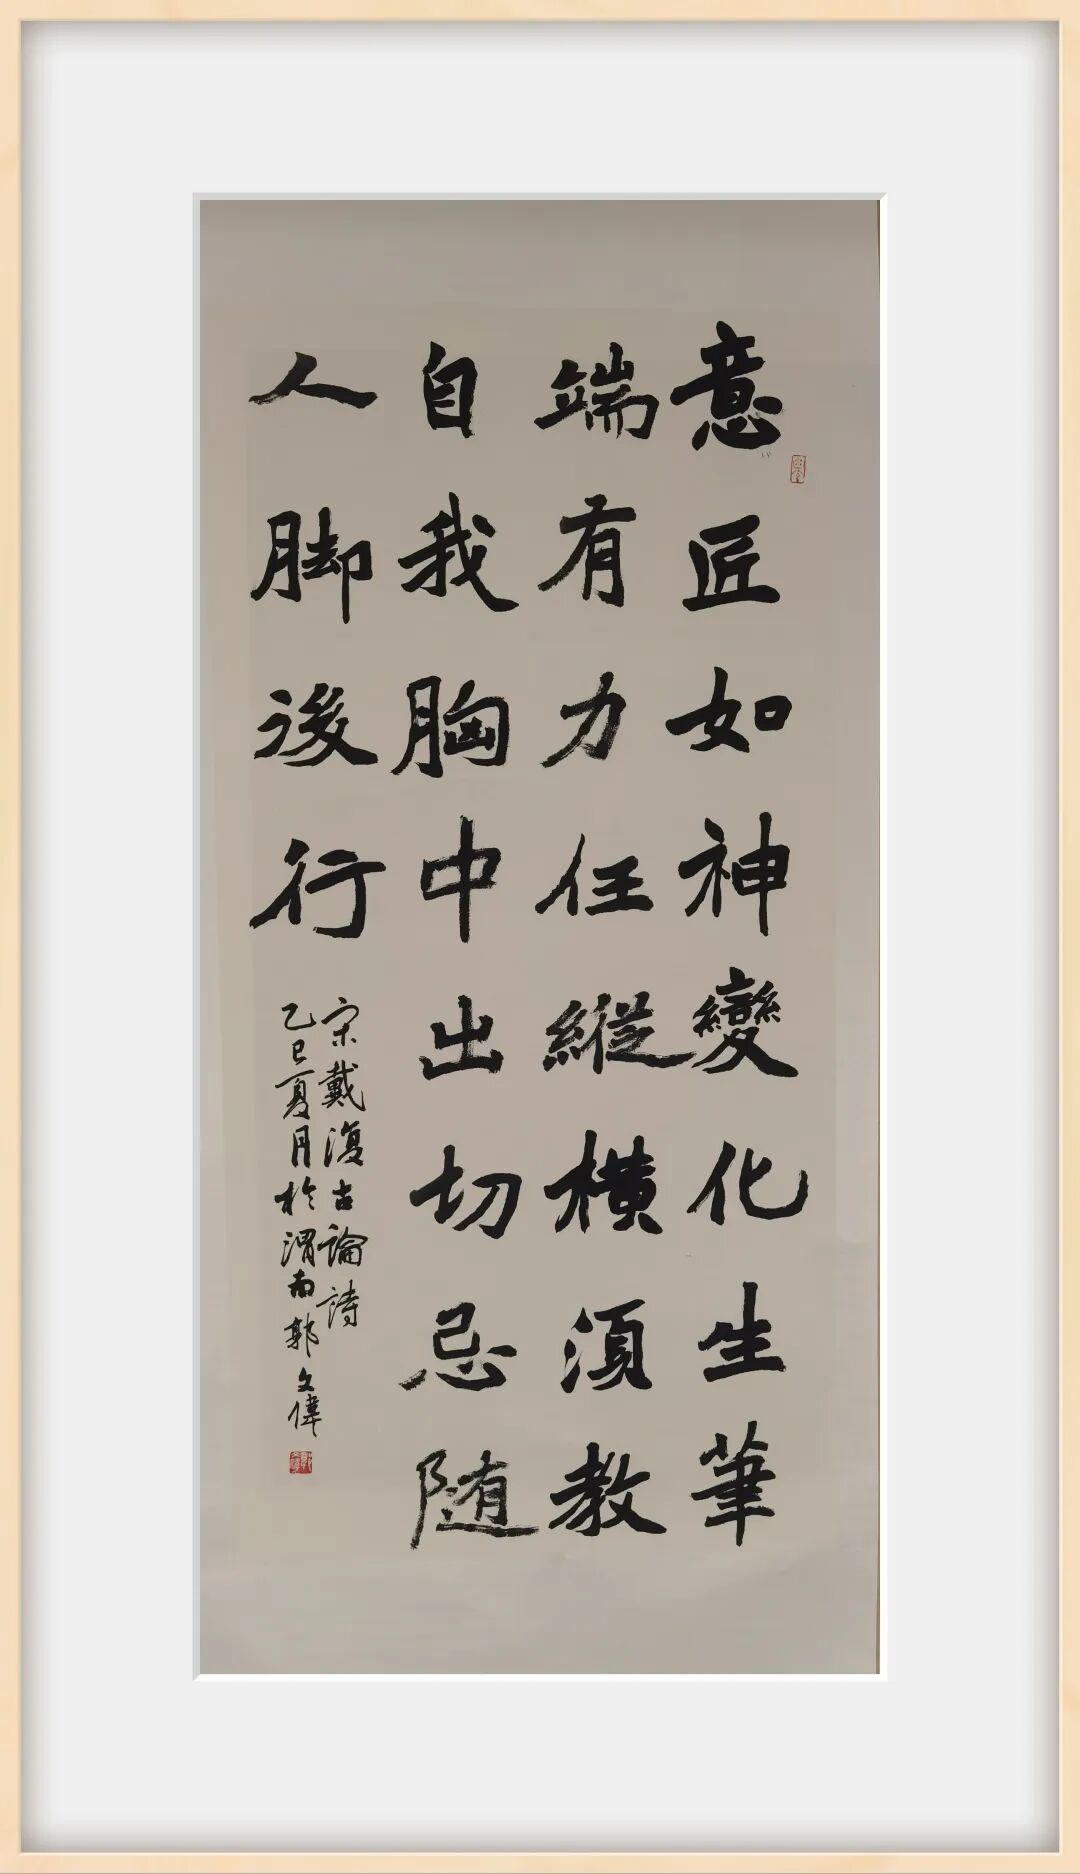 意匠如神變化生筆
端有力任縱横須教
自我胸中出切忌随
人脚後行
宋戴復古論詩
乙巳夏月於渭南郭文偉